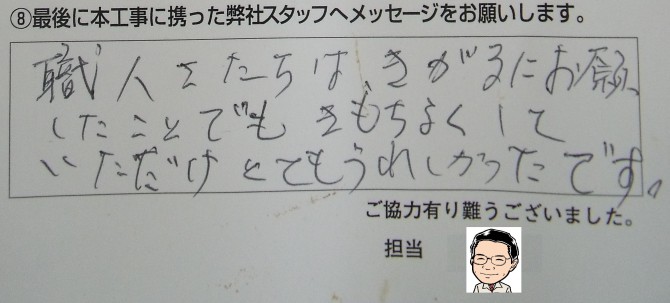 ⑧最後に本工事に携った弊社スタッフへメッセージをお願いします。
職人さたちは、きがるにお願
したことでも きもちよくして
いただけとてもうれしかったです。
ご協力有り難うございました。
担当